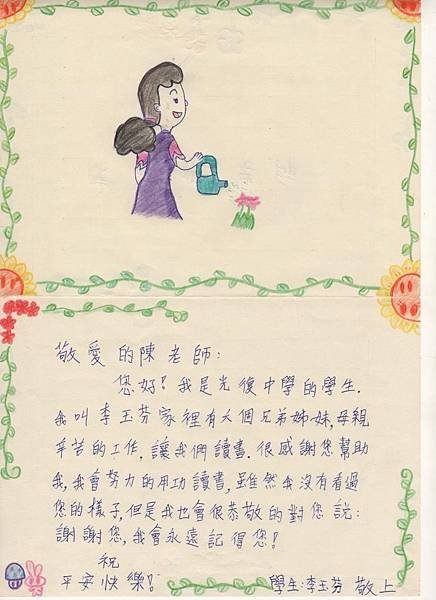 敬愛的陳老師:
您好!我是光復中學的學生.
我叫李玉芬家裡有六個兄弟姊妹,母親
辛苦的工作.讓我們讀書.很感謝您幫助
我,我會努力的用功讀書,雖然我沒有看過
您的樣子,但是我也會很恭敬的對您說:
謝謝您,我會永遠記得您!
祝
平安快樂!
學生:李玉芬 敬上